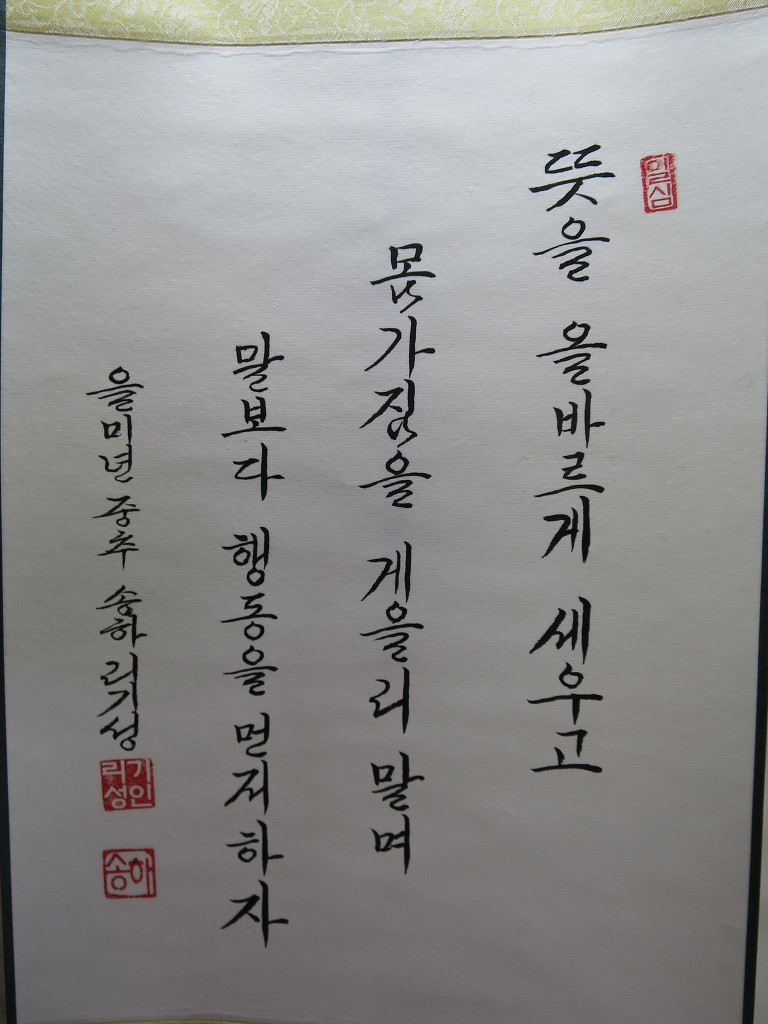 뜻을 올바르게 세우고
몸가짐을 게을리 말며
말보다 행동을 먼저하자
을미년 중추 송하 리기성
리기
성인
송하